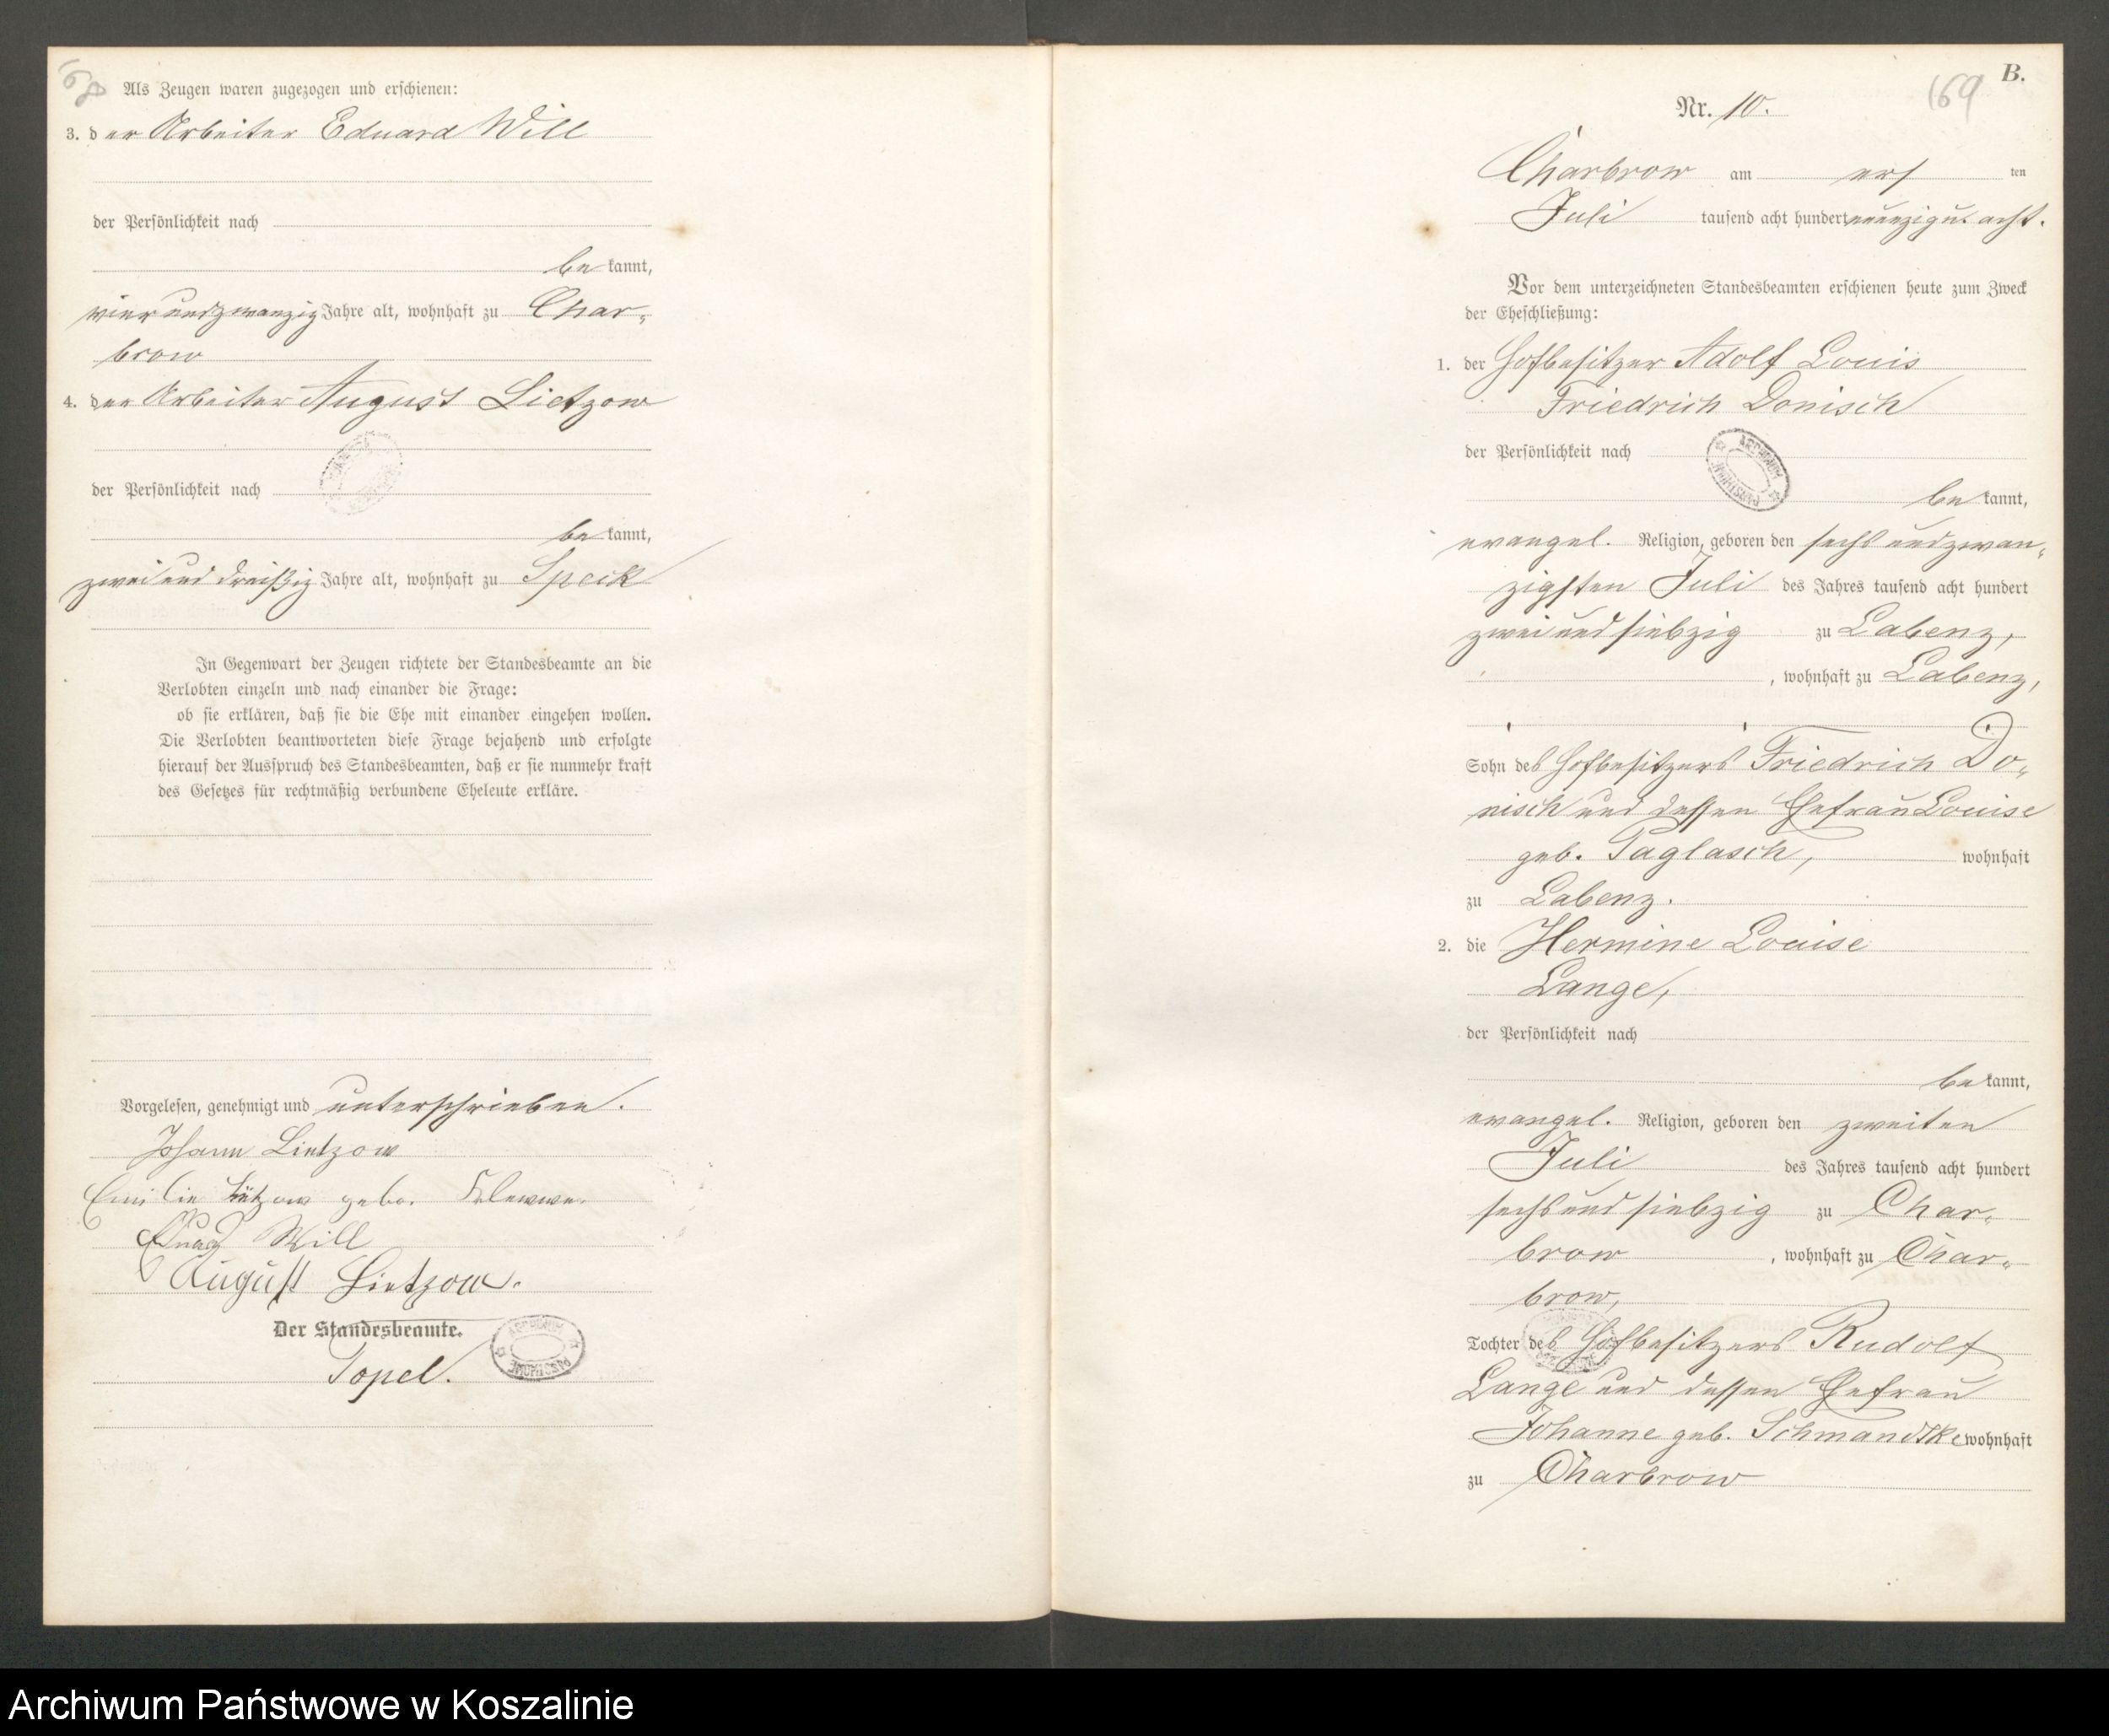 68
Als Zeugen waren zugezogen und erschienen:
3. der Arbeiter Eduard Will
der Persönlichkeit nach
be kannt,
vier und zwanzig Jahre alt, wohnhaft zu Char-
brow
4. der Arbeiter August Lietzow
der Persönlichkeit nach
be kannt,
zwei und dreißig Jahre alt, wohnhaft zu Speck
In Gegenwart der Zeugen richtete der Standesbeamte an die
Verlobten einzeln und nach einander die Frage:
ob sie erklären, daß sie die Ehe mit einander eingehen wollen.
Die Verlobten beantworteten diese Frage bejahend und erfolgte
hierauf der Ausspruch des Standesbeamten, daß er sie nunmehr kraft
des Gesetzes für rechtmäßig verbundene Eheleute erkläre.
Vorgelesen, genehmigt und unterschrieben.
Johann Lietzow
Emilie Lietzow gebo.
Will
August Lietzow.
Der Standesbeamte.
Topel.
ARCHIWUM PAŃSTWOWE
B.
169
Nr. 10.
Charbrow am ers ten
Juli tausend acht hundert neunzig u. acht.
Vor dem unterzeichneten Standesbeamten erschienen heute zum Zweck
der Eheschließung:
1. der Hofbesitzer Adolf Louis
Friedrich Donisch
der Persönlichkeit nach
ARCHIWUM PAŃSTWOWE
be kannt,
evangel. Religion, geboren den sechs und zwan-
zigsten Juli des Jahres tausend acht hundert
zwei und siebzig zu Labenz,
, wohnhaft zu Labenz,
Sohn des Hofbesitzers Friedrich Do-
nisch und dessen Ehefrau Louise
geb. Paglasch, wohnhaft
zu Labenz.
2. die Hermine Louise
Lange,
der Persönlichkeit nach
be kannt,
evangel. Religion, geboren den zweiten
Juli des Jahres tausend acht hundert
sechs und siebzig zu Char-
brow , wohnhaft zu Char-
brow,
Tochter des Hofbesitzers Rudolf
Lange und dessen Ehefrau
Johanne geb. Schmandtke wohnhaft
zu Charbrow
Archiwum Państwowe w Koszalinie